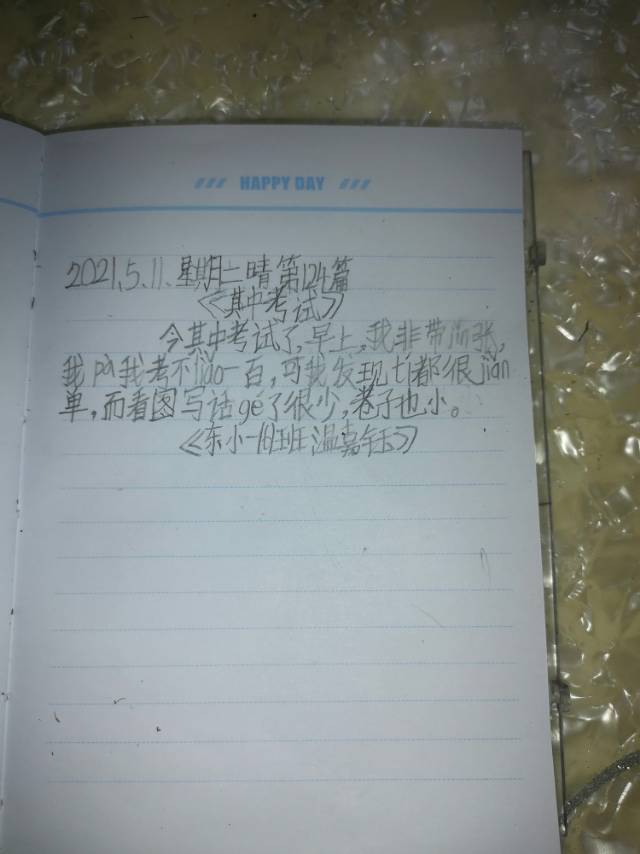 HAPPY DAY
2021.5.11.星期二晴第124篇
《其中考试》
今其中考试了,早上,我非带
我pà我考不liǎo一百,可我发现tí都很jiǎn
单,而看图写话gé了很少,卷子也小。
《东小一班温嘉钰》